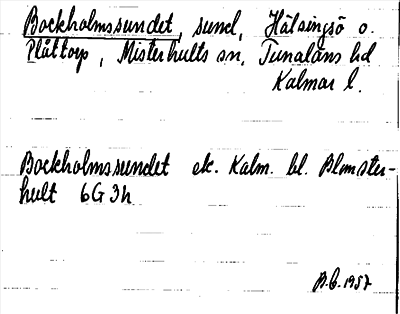 Bockholmssundet, sund, Hälsingsö o.
Plåttorp, Misterhults sn, Tunaläns hd
Kalmar l.
Bockholmssundet ek. Kalm. bl. Blomster-
hult 6G3h
B.G. 1957